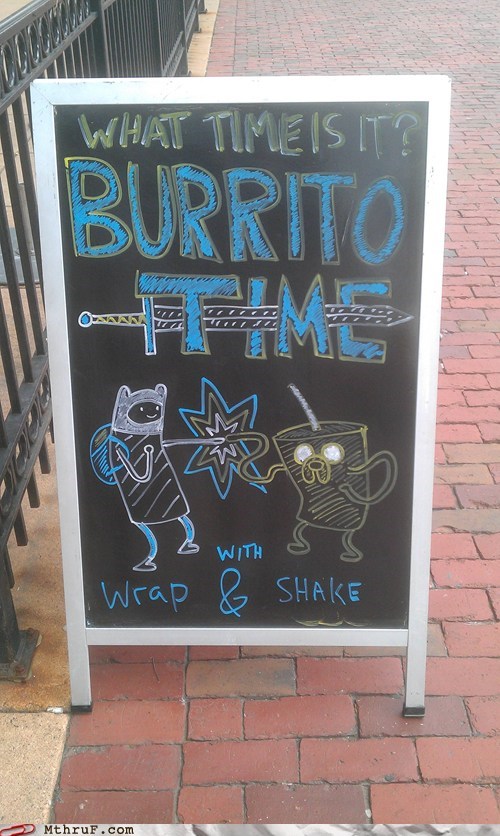 WHAT TIME IS IT?
BURRITO
TIME
WITH
Wrap & SHAKE
MThruF.com